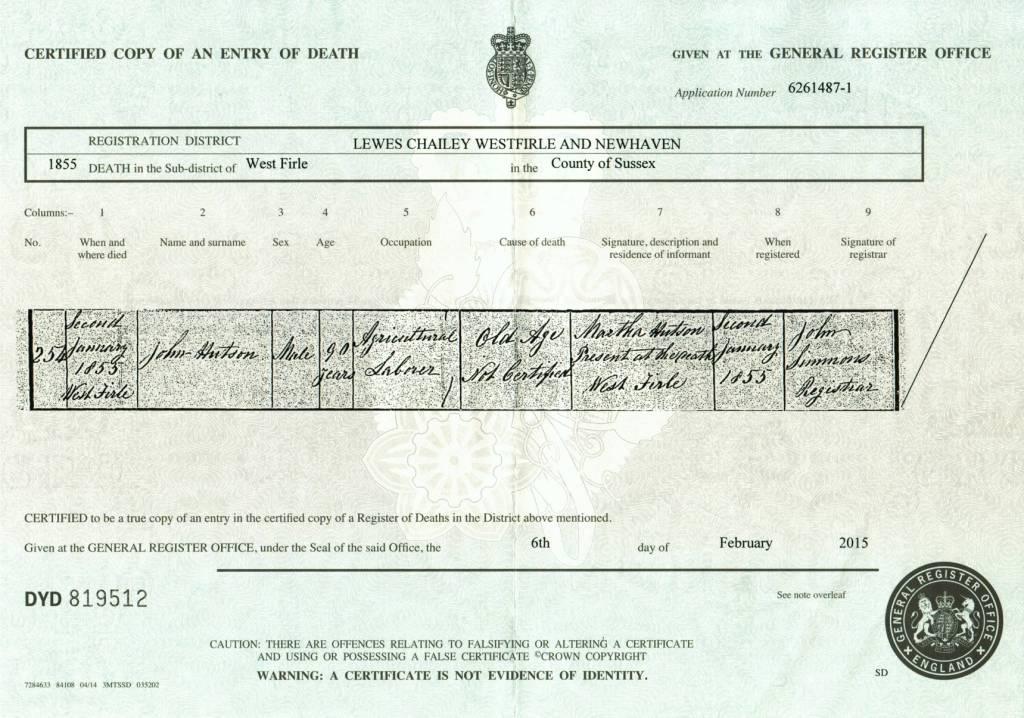 CERTIFIED COPY OF AN ENTRY OF DEATH
GIVEN AT THE GENERAL REGISTER OFFICE
Application Number 6261487-1
REGISTRATION DISTRICT LEWES CHAILEY WESTFIRLE AND NEWHAVEN
1855 DEATH in the Sub-district of West Firle in the County of Sussex
Columns:– 1 2 3 4 5 6 7 8 9
No. When and where died Name and surname Sex Age Occupation Cause of death Signature, description and residence of informant When registered Signature of registrar
Second January 1855 West Firle
John Hutson
Male
90 years
Agricultural Laborer
Old Age Not Certified
Martha Hutson Present at the death West Firle
Second January 1855
John Simmons Registrar
CERTIFIED to be a true copy of an entry in the certified copy of a Register of Deaths in the District above mentioned.
Given at the GENERAL REGISTER OFFICE, under the Seal of the said Office, the 6th day of February 2015
DYD 819512
See note overleaf
GENERAL REGISTER OFFICE
ENGLAND
CAUTION: THERE ARE OFFENCES RELATING TO FALSIFYING OR ALTERING A CERTIFICATE
AND USING OR POSSESSING A FALSE CERTIFICATE ©CROWN COPYRIGHT
WARNING: A CERTIFICATE IS NOT EVIDENCE OF IDENTITY.
SD
7284633 84108 04/14 3MTSSD 035202